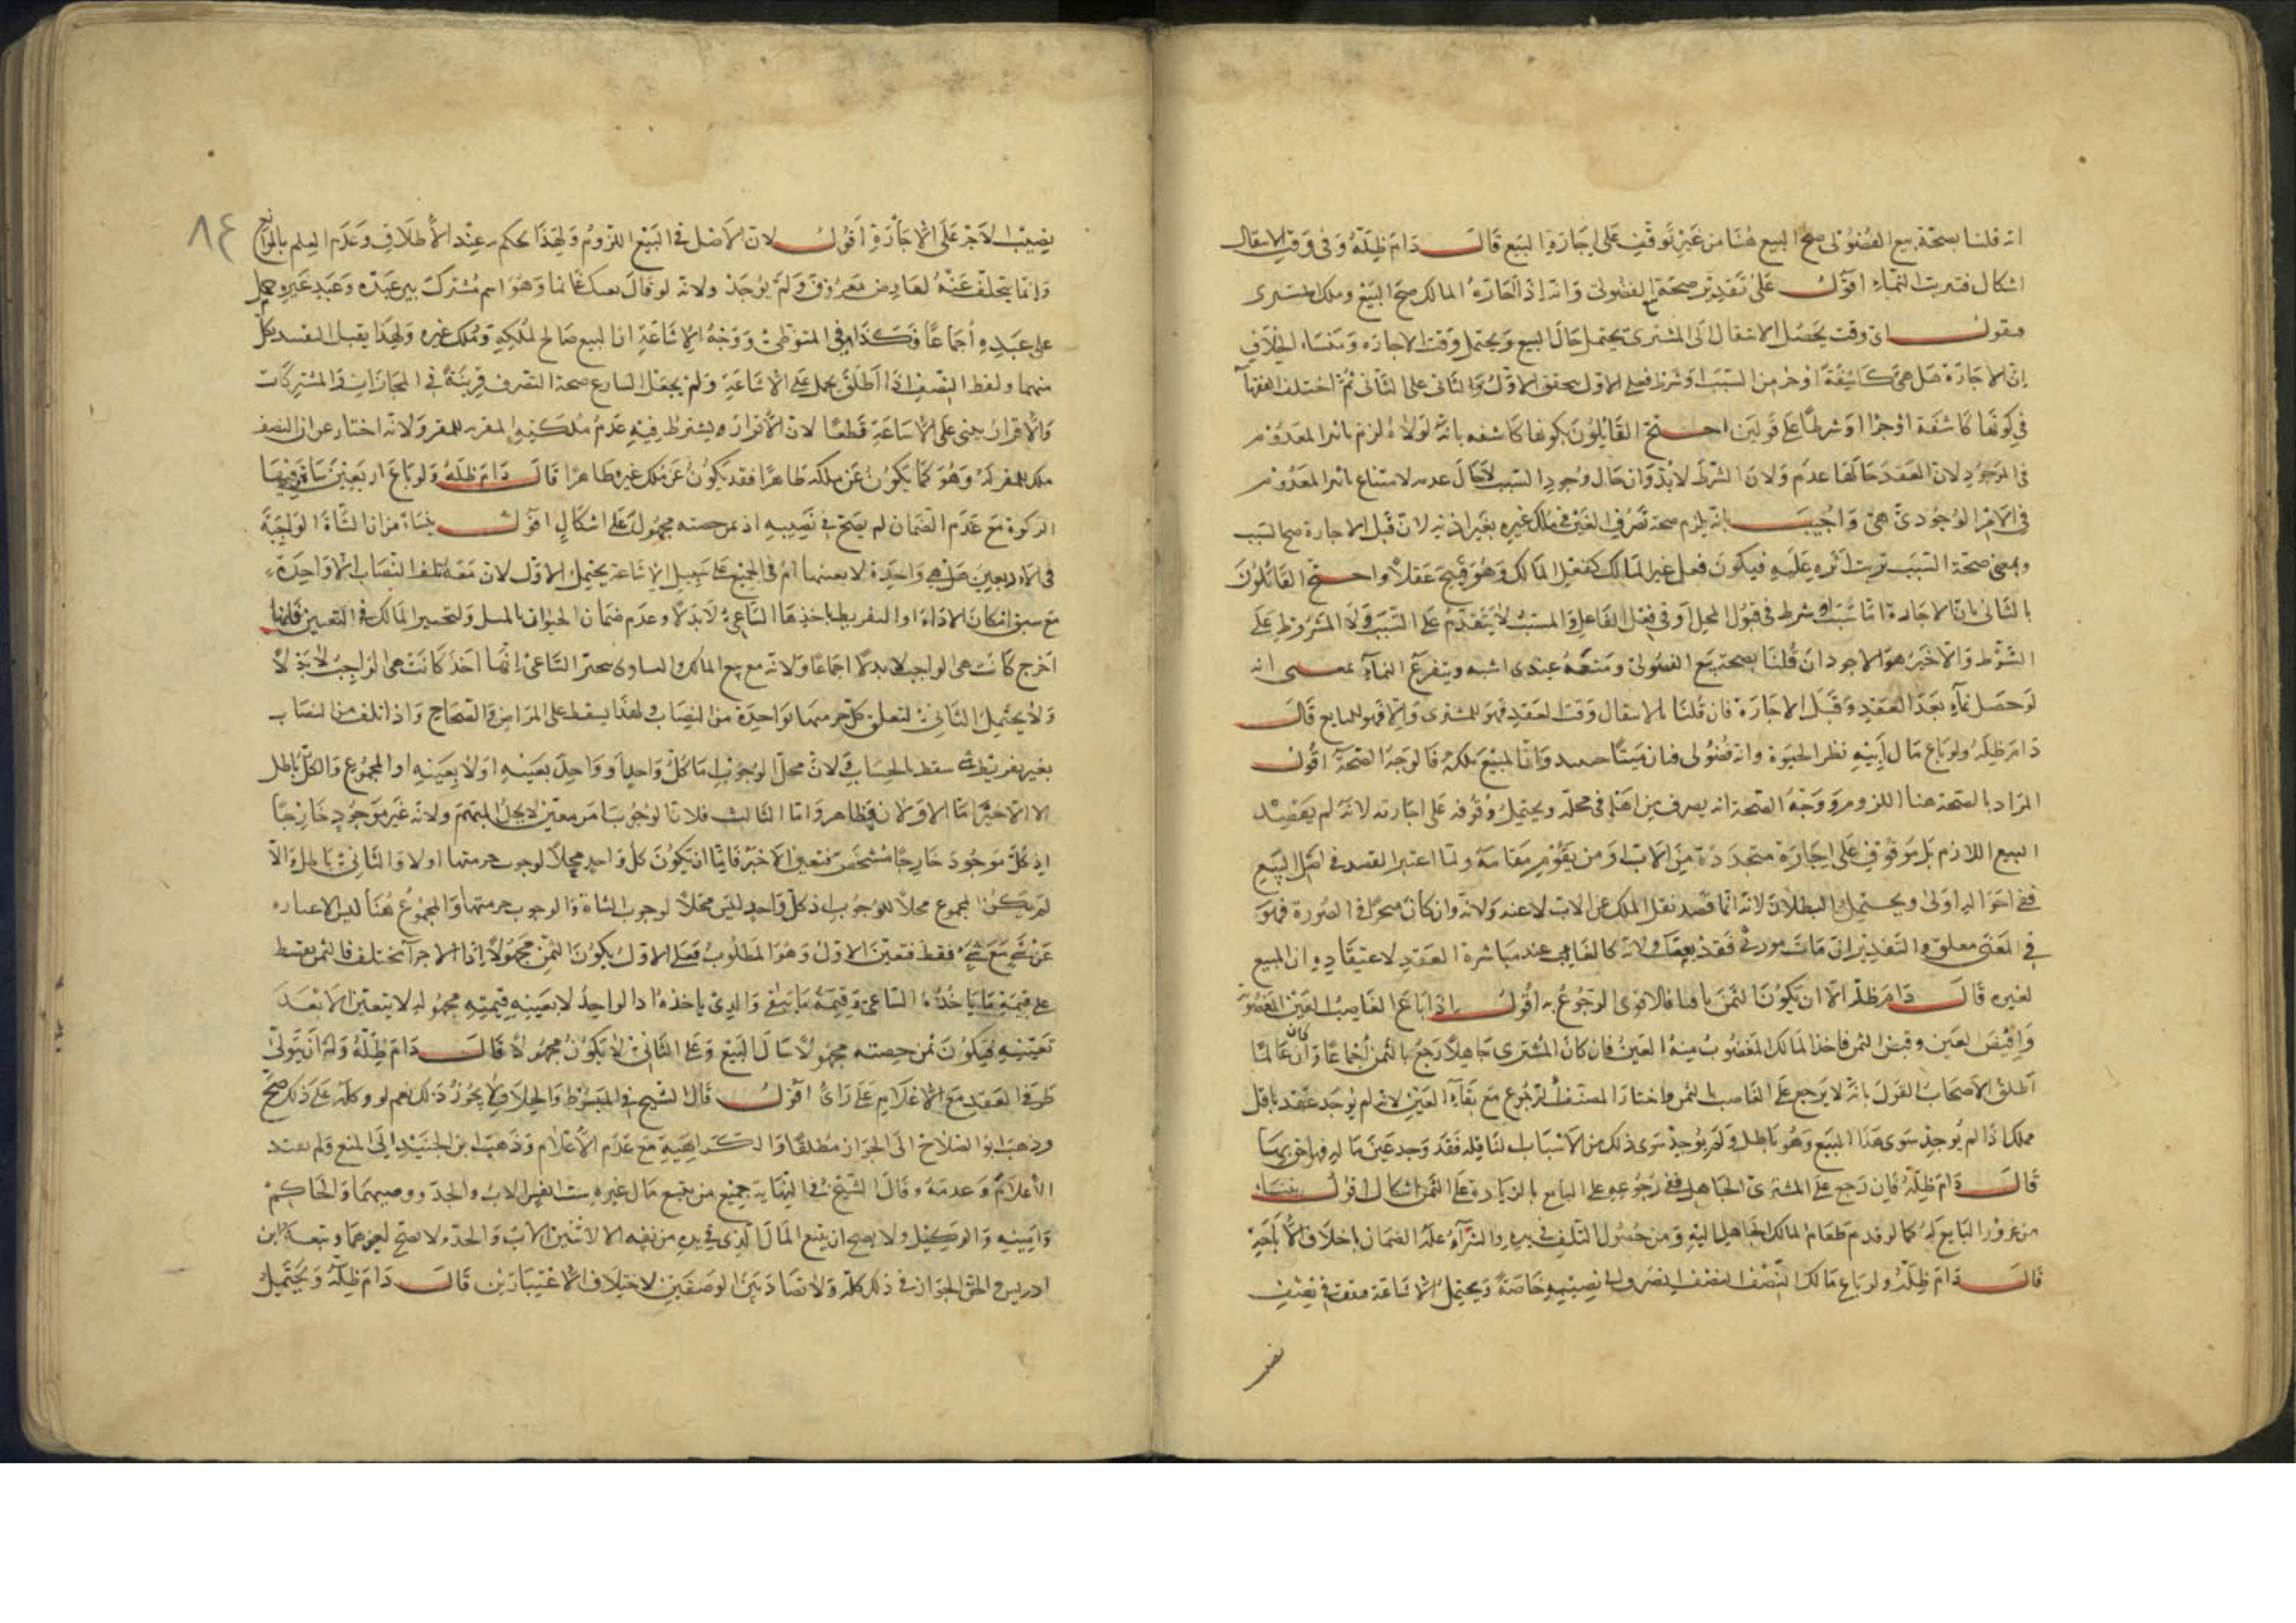 انه قلنا بصحة بيع الفضولى صح البيع هنا من غير توقف على اجازة البيع قال دام ظله وفى وقت الانتقال
اشكال فترتب النماء اقول على تقدير صحة الفضولى وانه اذا اجازه المالك صح البيع وملك المشترى
فنقول اى وقت يحصل الانتقال الى المشترى يحتمل حال البيع ويحتمل وقت الاجازه ومنشاء الخلاف
ان الاجازة هل هى كاشفة او جزء من السبب او شرط فعلى الاول يحقق الاول والثانى على الثانى ثم اختلف الفقهاء
فى كونها كاشفة او جزءا او شرطا على قولين احتج القايلون بكونها كاشفه بانه لولاه لزم تاثير المعدوم
فى الموجود لان العقد حالها عدم ولان الشرط لابد وان حال وجود السبب لا حال عدمه لامتناع تاثير المعدوم
فى الامر الوجودى هى واجيب بانه يلزم صحة تصرف الغير فى ملك غيره بغير اذنه لان قبل الاجارة صح السبب
ومعنى صحة السبب ترتب اثره عليه فيكون فعل غير المالك كفعل المالك وهو قبيح عقلا واحتج القائلون
بالثانى بان الاجازة اما سبب او شرط فى قبول المحل او فى فعل الفاعل والمسبب لا يتقدم على السبب ولا المشروط على
الشرط والاخير هو الاجود ان قلنا بصحة بيع الفضولى ومنعه عندى اشبه ويتفرع النماء بمعنى انه
لو حصل نماء بعد العقد وقبل الاجازة فان قلنا بالانتقال وقت العقد فهو للمشترى والا فهو للبايع قال
دام ظله ولو باع مال ابيه نظر الحيوة وانه فضولى فبان ميتا حينئذ وان المبيع ملكه فالوجه الصحة اقول
المراد بالصحة هنا اللزوم ووجه الصحة انه يصرف من اهله فى محله ويحتمل وقوفه على اجازته لانه لم يقصد
البيع اللازم بل موقوف على اجازة متجددة من الاب او من يقوم مقامه ولما اعتبر القصد فى اصل البيع
ففى احواله اولى ويحتمل البطلان لانه انما قصد نقل الملك عن الاب لا عنه ولانه وان كان منجزا فى الصورة فهو
فى المعنى معلق والتقدير ان مات مورثى فقد بعتك ولانه كالغايب عند مباشرة العقد لاعتقاده ان المبيع
لغيره قال دام ظله الا ان يكون الثمن باقيا فالاقوى الرجوع به اقول اذا باع الغاصب العين المغصوبة
واقبض العين وقبض الثمن فاخذ المالك المغصوب منه العين فان كان المشترى جاهلا رجع بالثمن اجماعا وان كان عالما
اطلق الاصحاب القول بانه لا يرجع على الغاصب بالثمن واختار المصنف الرجوع مع بقاء العين لانه لم يوجد عقد ناقل
مملك اذا لم يوجد سوى هذا البيع وهو باطل ولم يوجد سوى ذلك من الاسباب الناقله فقد وجد عين ماله فهو احق بها
قال دام ظله فان رجع على المشترى الجاهل ففى رجوعه على البايع بالزيادة على الثمن اشكال اقول ينشاء
من غرور البايع له كما لو قدم طعام المالك الجاهل اليه ومن حصول التلف فى يده والشراء عقد الضمان باخلاف الاخير
قال دام ظله ولو باع مالك النصف النصف انصرف الى نصيبه خاصة ويحتمل الاشاعة فيقف فى نصف
نصيب
٨٤
نصيب الاخر على الاجازة اقول لان الاصل فى البيع اللزوم ولهذا يحكم به عند الاطلاق وعدم العلم بالموانع
وانما يتخلف عنه لعارض معروف ولم يوجد ولانه لو قال بعتك غانما وهو اسم مشترك بين عبده وعبد غيره حمل
على عبده اجماعا فكذا فى المتواطى ووجه الاشاعة ان البيع صالح لملكه وملك غيره ولهذا يقبل التقييد بكل
منهما ولفظ النصف اذا اطلق يحمل على الاشاعة ولم يجعل الشارع صحة التصرف قرينة فى المجازات والمشتركات
والاقرار يبنى على الاشاعة قطعا لان الاقرار يشترط فيه عدم ملكية المقر به للمقر ولانه اخبار عن ان النصف
ملك للمقر له وهو كما يكون عن ملكه ظاهرا فقد يكون عن ملك غيره ظاهرا قال دام ظله ولو باع اربعين شاة وفيها
الزكوة مع عدم الضمان لم يصح فى نصيبه اذ ثمن حصته مجهول على اشكال اقول ينشاء من ان الشاة الواجبة
فى الاربعين هل هى واحدة لا بعينها ام فى الجميع على سبيل الاشاعة يحتمل الاول لان معه تلف النصاب الا واحدة
مع سبق امكان الاداء او التفريط ياخذها الساعى لا بدلا وعدم ضمان الحيوان بالمثل ولتخيير المالك فى التعيين فلما
اخرج كانت هى الواجب لا بدلا اجماعا ولانه مع بيع المالك والتساوى يتخير الساعى انها اخذ كانت هى الواجب لا بدلا
ولا يحتمل الثانى لتعلق كل جزء منها بواحدة من النصاب ولهذا يسقط على المراض والصحاح واذا تلف من النصاب
بغير تفريط شى سقط بالحساب ولان محل الوجوب اما كل واحد او واحد بعينه او لا بعينه او المجموع والكل باطل
الا الاخير اما الاولان فظاهر واما الثالث فلان الوجوب امر معين لا يحل المبهم ولانه غير موجود خارجا
اذ كل موجود خارجا متشخص فتعين الاخير فاما ان يكون كل واحد محلا لوجوب جزء منها او لا والثانى باطل والا
لم يكن المجموع محلا للوجوب اذ كل واحد ليس محلا لوجوب الشاة والوجوب جزء منها والمجموع هنا ليس الا عباره
عن شى مع شى فقط فتعين الاول وهو المطلوب فعلى الاول يكون الثمن مجهولا اذا الاجزاء تختلف فالثمن يقسط
على قيمة ما ياخذه الساعى وقيمة ما يبقى والذى ياخذه اذ الواحد لا بعينه قيمته مجهوله لا يتعين الا بعد
تعيينه فيكون ثمن حصته مجهولا حال البيع وعلى الثانى لا يكون مجهولا قال دام ظله وله ان يتولى
طرفى العقد مع الاعلام على راى اقول قال الشيخ فى المبسوط والخلاف لا يجوز ذلك نعم لو وكله على ذلك صح
وذهب ابو الصلاح الى الجواز مطلقا والكراهية مع عدم الاعلام وذهب ابن الجنيد الى المنع ولم يقيد
الاعلام وعدمه وقال الشيخ فى النهاية جميع من يبيع مال غيره ستة انفس الاب والجد ووصيهما والحاكم
وامينه والوكيل ولا يصح ان يبتع المال الذى فى يده من نفسه الا لاثنين الاب والجد ولا يصح لغيرهما وتبعه ابن
ادريس والحق الجواز فى ذلك كله ولا تضاد بين الوصفين لاختلاف الاعتبارين قال دام ظله ويحتمل